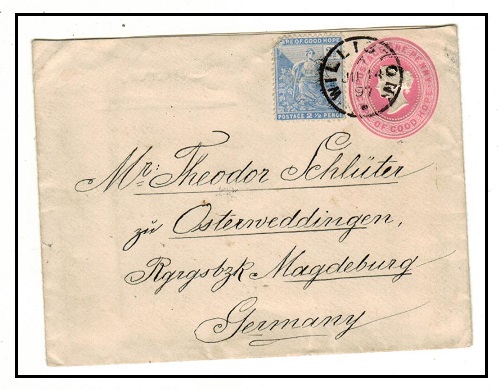 PE OF GOOD HOPE
POSTAGE 2½ PENCE
WILLISTON
JU 14
97
ONE PENNY
OF GOOD HOPE
Mr. Theodor Schlüter
zu Osterweddingen,
Rgrgsbzk Magdeburg
Germany